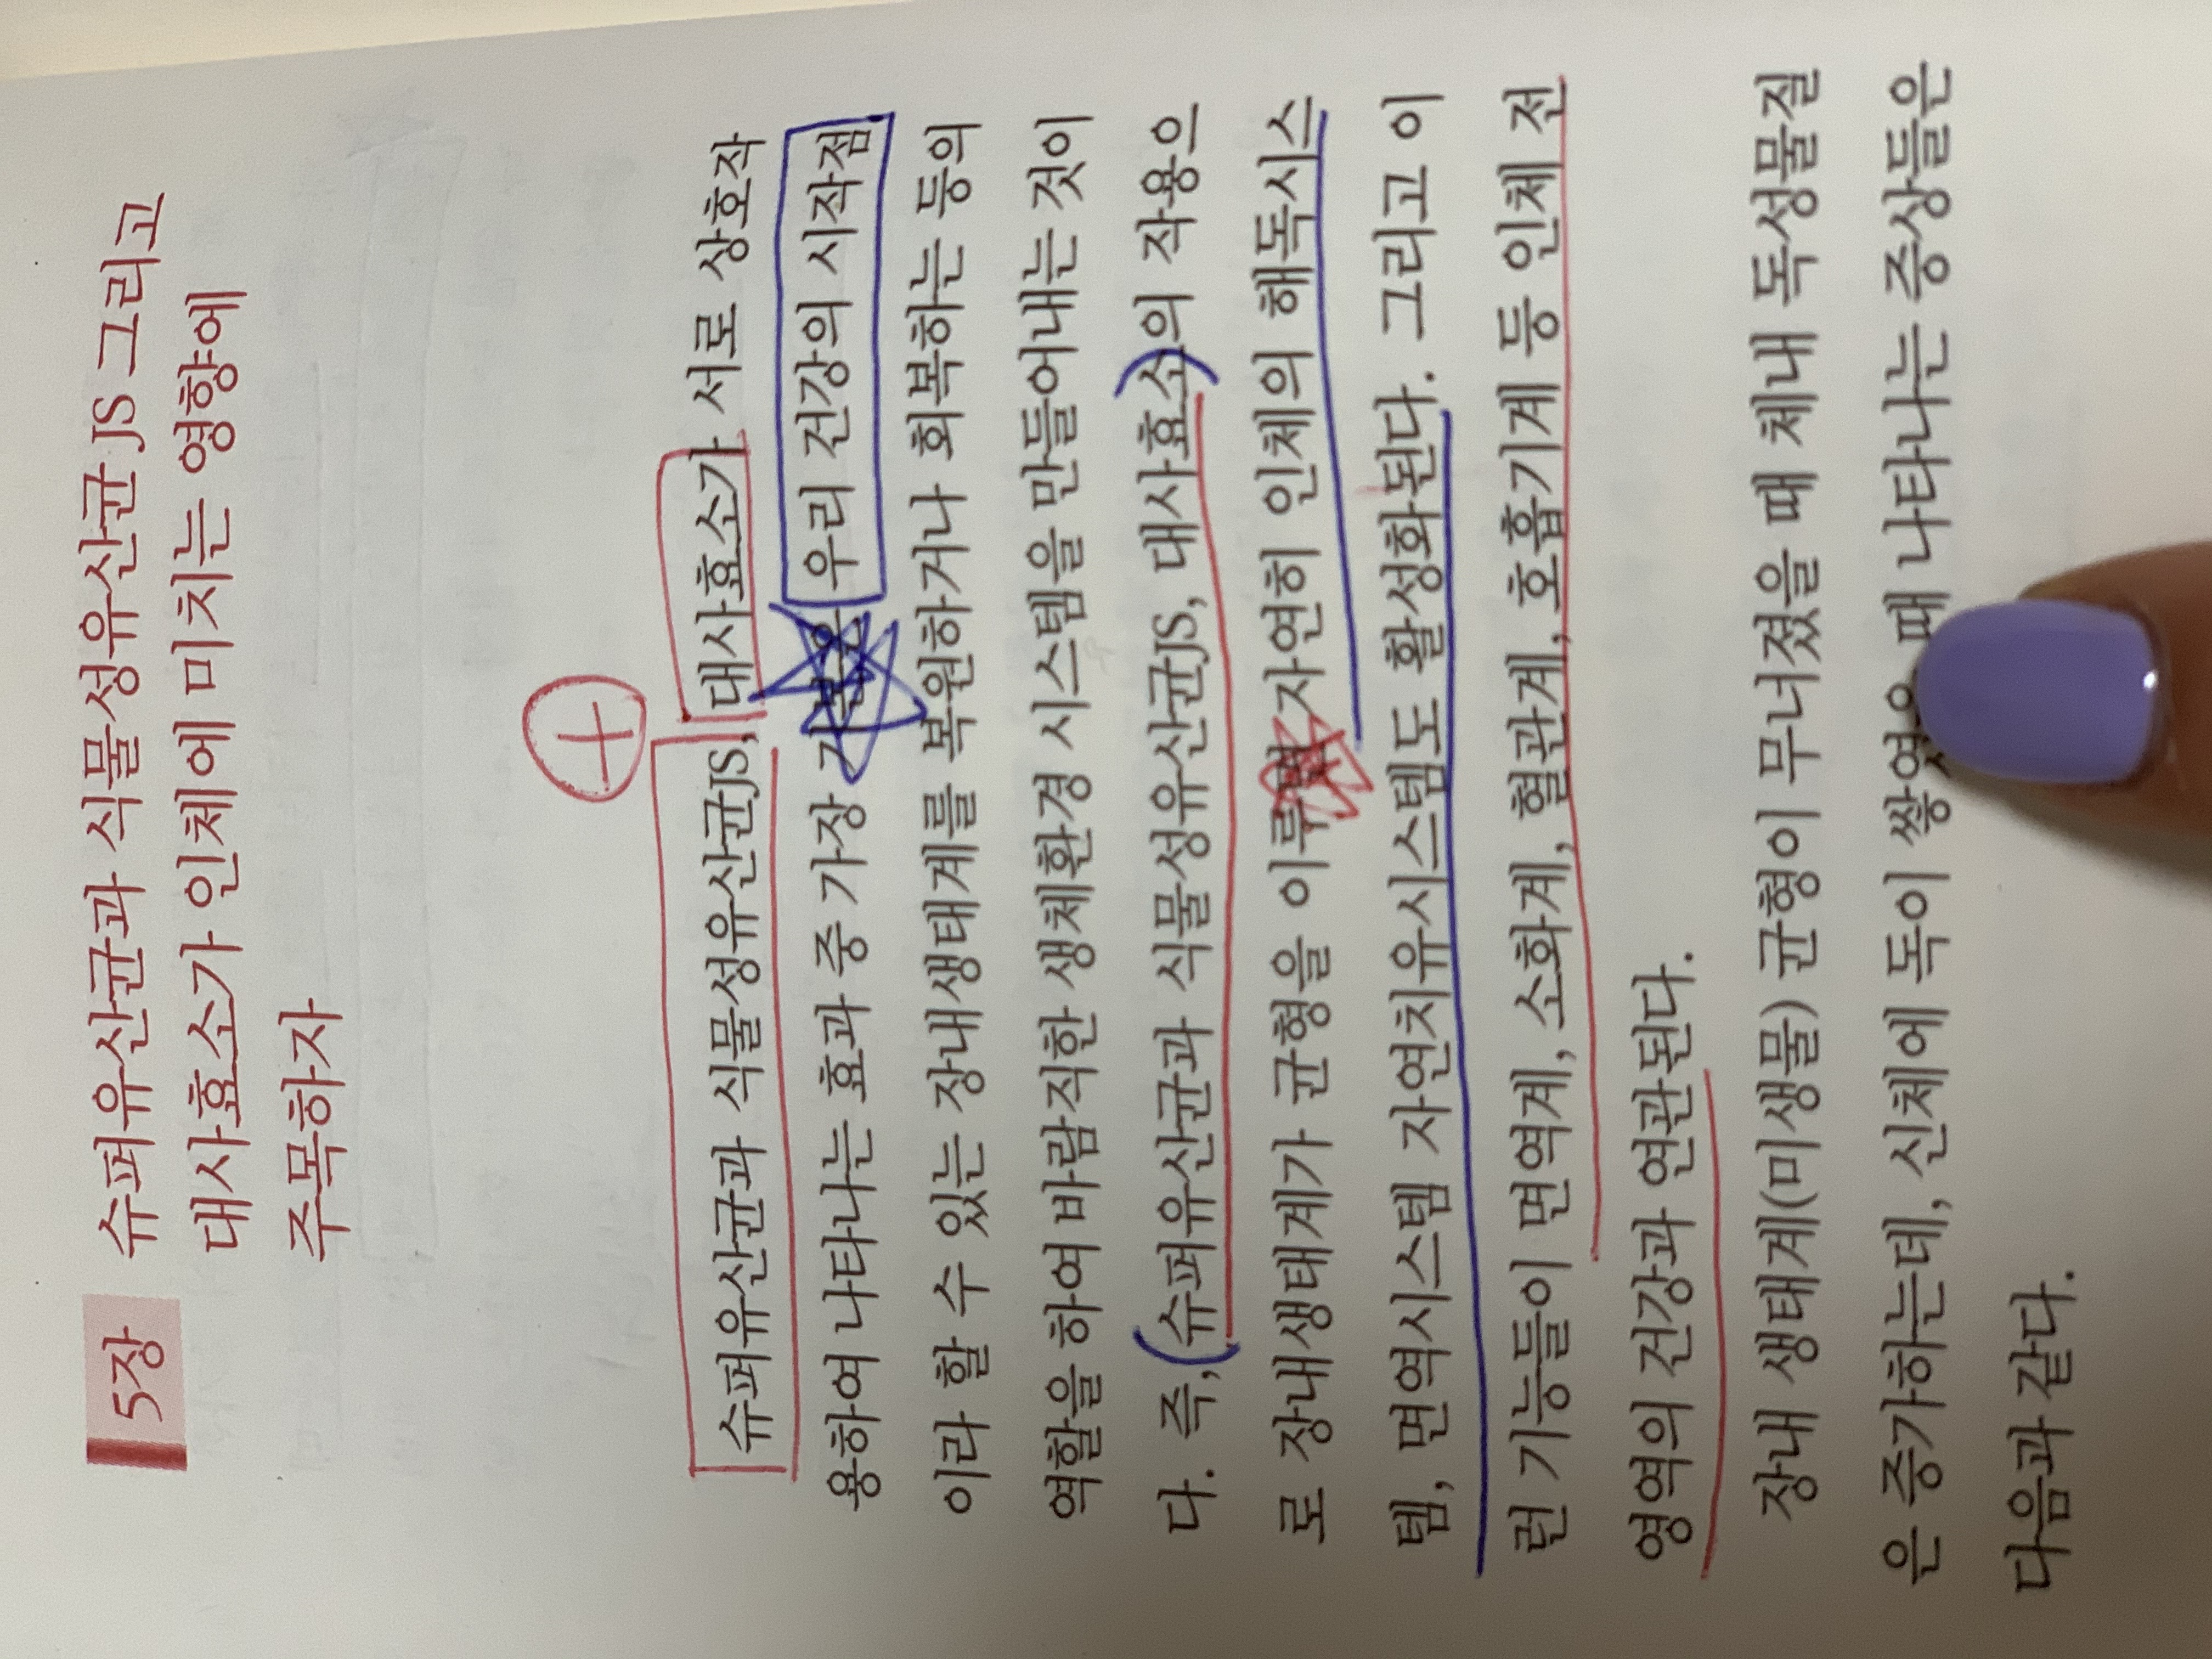 5장 슈퍼유산균과 식물성유산균JS 그리고
대사효소가 인체에 미치는 영향에
주목하자
슈퍼유산균과 식물성유산균JS, 대사효소가 서로 상호작
용하여 나타나는 효과 중 가장 우리 건강의 시작점
이라 할 수 있는 장내생태계를 복원하거나 회복하는 등의
역할을 하여 바람직한 생체환경 시스템을 만들어내는 것이
다. 즉, 슈퍼유산균과 식물성유산균JS, 대사효소의 작용으
로 장내생태계가 균형을 자연히 인체의 해독시스
템, 면역시스템 자연치유시스템도 활성화된다. 그리고 이
런 기능들이 면역계, 소화계, 혈관계, 호흡기계 등 인체 전
영역의 건강과 연관된다.
장내 생태계(미생물) 균형이 무너졌을 때 체내 독성물질
은 증가하는데, 신체에 독이 때 나타나는 증상들은
다음과 같다.